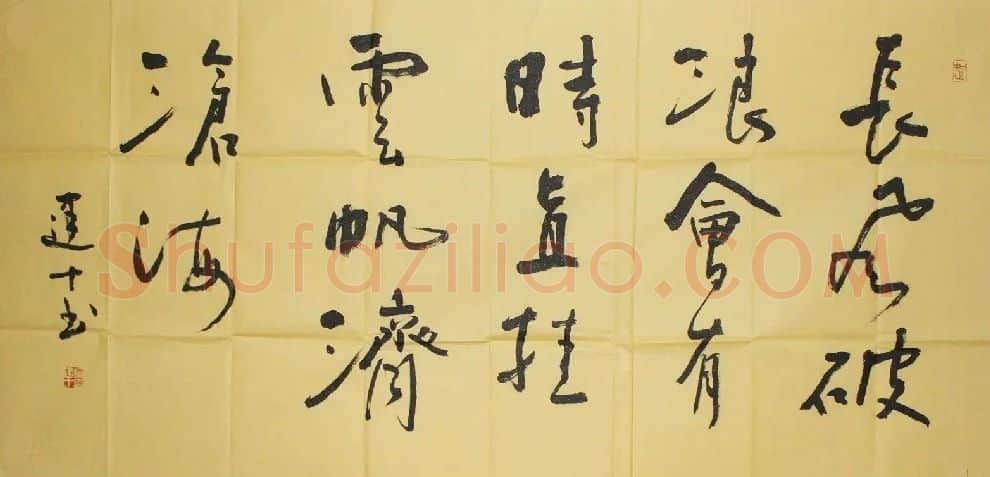 長風破
浪會有
時直挂
雲帆濟
滄海
建十书
Shufaziliao.COM